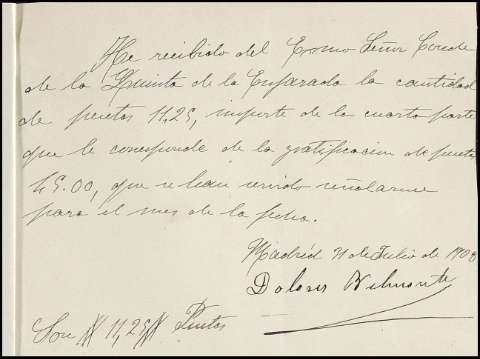 He recibido del Exmo Señor Conde
de la Quinta de la Enjarada la cantidad
de pesetas 11,25, importe de la cuarta parte
que le corresponde de la gratificacion de pesetas
45.00, que se han servido señalarme
para el mes de la fecha.
Madrid 31 de Julio de 1908
Dolores Belmonte
Son # 11,25 # Ptas